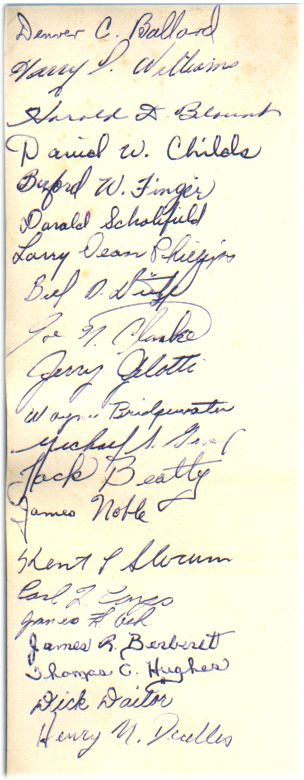 Denver C. Ballard
Harry S. Williams
Harold A. Blount
David W. Childs
Buford W. Finger
Darald Scholifield
Larry Dean Phillips
Bill D.
Joe N. Clarke
Jerry Gilotti
Wayne Bridgewater
Michael S.
Jack Beatty
James Noble
Kent L Slocum
Carl L.
James H.
James R. Berberet
Thomas C. Hughes
Dick Daitor
Henry N. Duelles